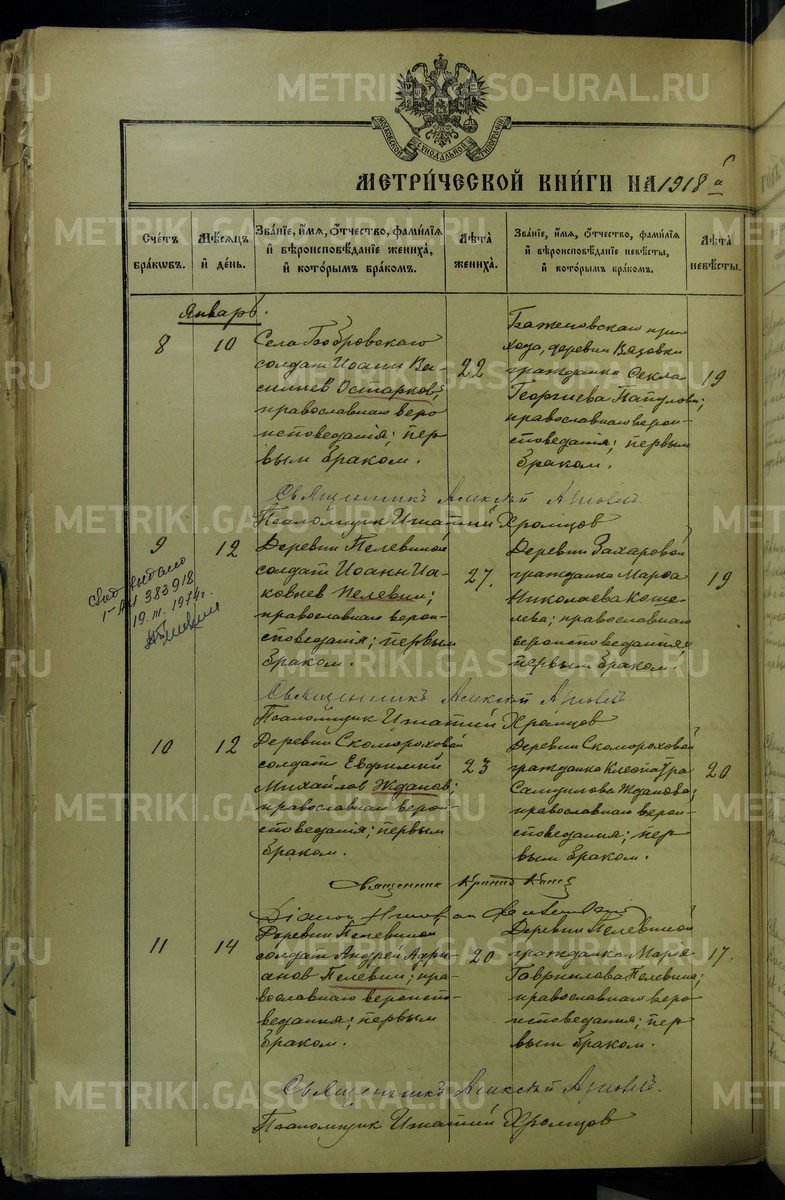 МОСКОВСКОЙ СѴНОДАЛЬНОЙ ТИПОГРАФІИ
МЕТРИ́ЧЕСКОЙ КНИ́ГИ НА 1918 й
Сче́тъ бра́кωвъ.
Мѣ́сѧцъ и҆ де́нь.
Зва́нїе, и҆́мѧ, ѻ҆́тчество, фами́лїѧ и҆ вѣроисповѣ́данїе жениха̀, и҆ кото́рымъ бра́комъ.
Лѣ́та жениха̀.
Зва́нїе, и҆́мѧ, ѻ҆́тчество, фами́лїѧ и҆ вѣроисповѣ́данїе невѣ́сты, и҆ кото́рымъ бра́комъ.
Лѣ́та невѣ́сты.
Январь.
8
10
Села Бобровскаго
солдат Иоанн Ва-
сильев Остарков;
православнаго веро
исповедания; пер
вым браком.
22
Баженовскаго при
хода, деревни Вязовки
гражданка Фекла
Георгиева Папулова;
православнаго верои-
споведания; первым
браком.
19
Священникъ Алексѣй
Псаломщик Игнатий Хромцов
9
12
Деревни Пелевиной
солдат Иоанн Иа-
ковлев Пелевин;
православнаго верои-
споведания; первым
браком.
27.
Деревни Захаровой
гражданка Марфа
Николаева Коше-
лева; православнаго
вероисповедания;
первым браком.
19
19.III.1974г.
Священникъ Алексѣй
Псаломщик Игнатий Хромцов
10
12
Деревни Скомороховой
солдат Евфимий
Михайлов Жданов;
православнаго верои-
споведания; первым
браком.
23
Деревни Скомороховой
гражданка Клеопатра
Самуилова Жданова;
православнаго верои-
споведания; пер
вым браком.
20
Священник
11
14
Деревни Пелевиной
солдат Андрей Адри-
анов Пелевин; пра-
вославнаго вероиспо-
ведания; первым
браком.
20
Деревни Пелевиной
гражданка Мария
Гаврилова Пелевина;
православнаго веро
исповедания; пер
вым браком.
17.
Священникъ Алексѣй
Псаломщик Игнатий Хромцов
METRIKI.GASO-URAL.RU